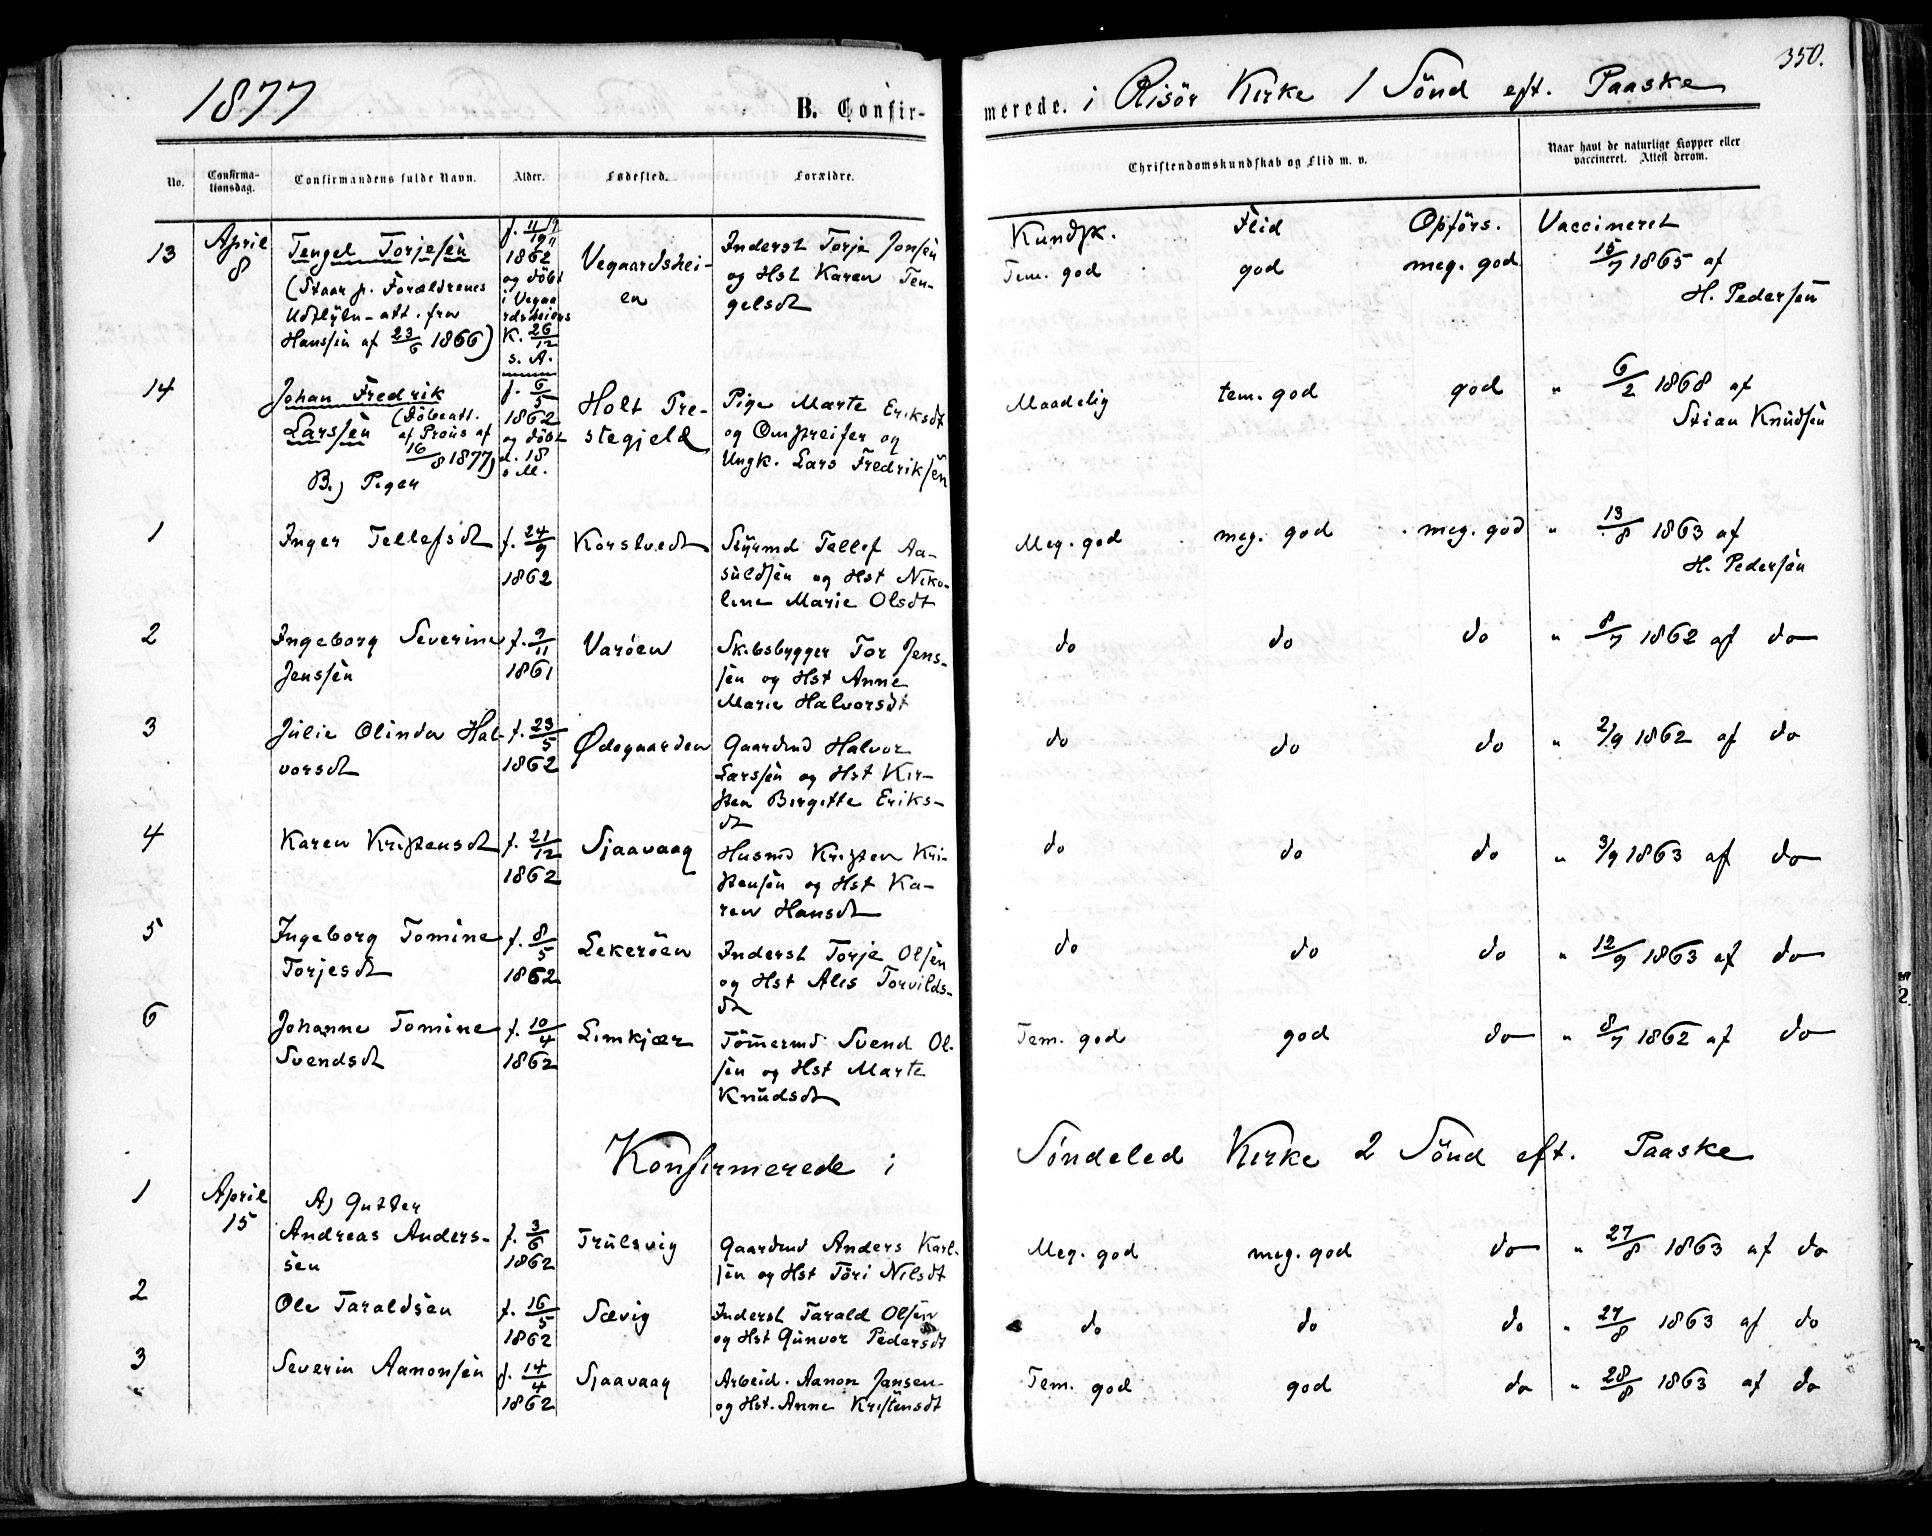 350.
1877 B. Confirmerede. i Risör Kirke 1 Sönd eft. Paaske
No. Confirmationsdag. Confirmandens fulde Navn. Alder. Fødested. Forældre. Christendomskundskab og Flid m. v. Naar havt de naturlige Kopper eller vaccineret. Attest derom.
Kundsk. Flid Opförs. Vaccineret
13 April 8 Tengel Torjesen Vegaardshei- Inderst Torje Jonsen Tem. god god meg. god 15/7 1865 af
1862
(Staar p. Forældrenes og döbt en og Hst Karen Ten- H. Pedersen
Udflytn-att. fra i Vegaa gelsdt
rdsheiens
Hanssen af 23/6 1866) K. 26/12
s. A.
14 Johan Fredrik f. 6/5 Holt Pre- Pige Marte Eriksdt Maadelig tem. god god " 6/2 1868 af
Larssen (Döbeatt. 1862 stegjeld og Omstreifer og Stian Knudsen
af Proüs af og döbt Ungk. Lars Fredriksen
16/8 1877) d. 18
s. M.
B.) Piger
1 Inger Tellefsdt f. 24/9 Korstvedt Styrmd Tellef Aa- Meg. god meg. god meg. god " 13/8 1863 af
1862 suldsen og Hst Niko- H. Pedersen
line Marie Olsdt
2 Ingeborg Severine f. 9/11 Varöen Skibsbygger Tor Jens- do do do " 8/7 1862 af do
Jenssen 1861 sen og Hst Anne
Marie Halvorsdt
3 Julie Olinda Hal- f. 23/5 Ødegaarden Gaardmd Halvor do do do " 2/9 1862 af do
vorsdt 1862 Larssen og Hst Kir-
sten Birgitte Eriks-
dt
4 Karen Kristensdt f. 21/12 Sjaavaag Husmd Kristen Kri- do do do " 3/9 1863 af do
1862 stensen og Hst Ka-
ren Hansdt
5 Ingeborg Tomine f. 8/5 Lekeröen Inderst Torje Olsen do do do " 12/9 1863 af do
Torjesdt 1862 og Hst Alis Torvilds-
dt
6 Johanne Tomine f. 10/4 Limkjær Tömermd Svend Ol- Tem. god god do " 8/7 1862 af do
Svendsdt 1862 sen og Hst Marte
Knudsdt
Konfirmerede i Söndeled Kirke 2 Sönd eft. Paaske
1 April 15 A) Gutter
Andreas Anders- f. 3/6 Trulsvig Gaardmd Anders Karl- Meg. god meg. god do " 27/8 1863 af do
sen 1862 sen og Hst Töri Nilsdt
2 Ole Taraldsen f. 16/5 Sævig Inderst Tarald Olsen do do do " 27/8 1863 af do
1862 og Hst Gunvor Pedersdt
3 Severin Aanonsen f. 14/4 Sjaavaag Arbeid. Aanon Jansen Tem. god god do " 28/8 1863 af do
1862 og Hst. Anne Kristensdt